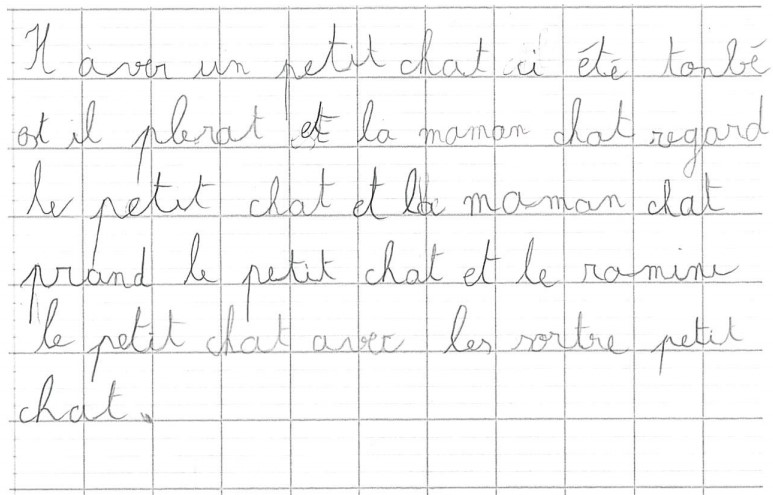 Il aver un petit chat ci été tonbé
et il plerat et la maman chat regard
le petit chat et la maman chat
prand le petit chat et le ramine
le petit chat avec les sortre petit
chat.